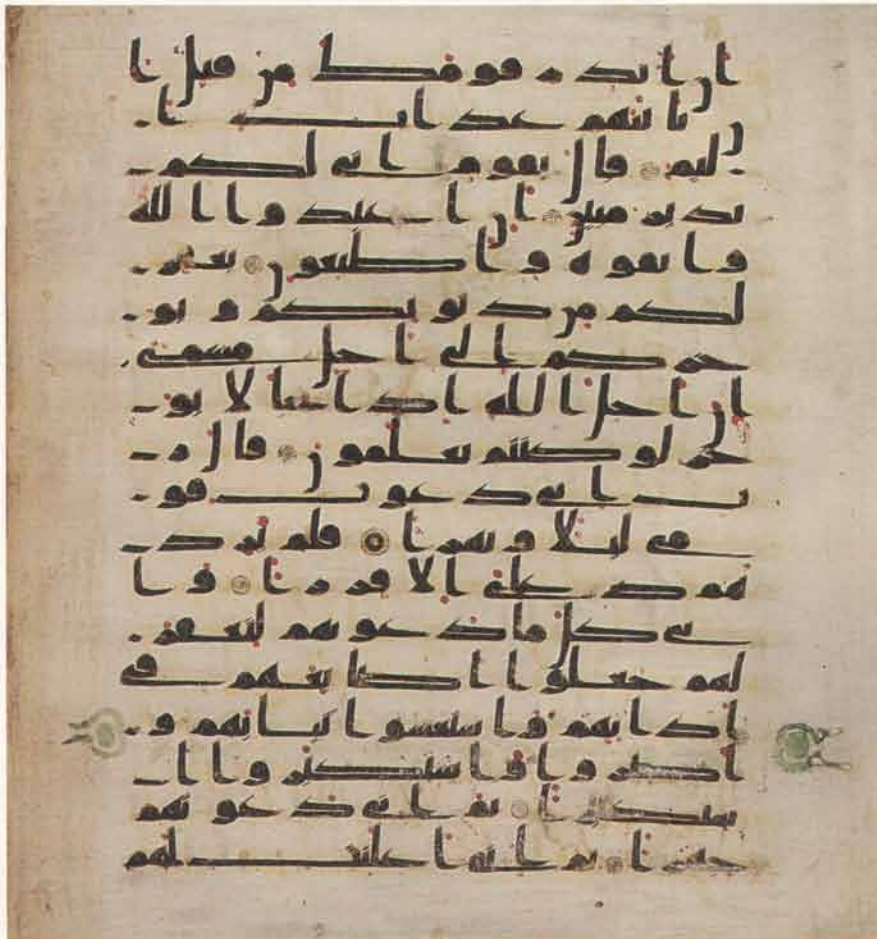 ان انذر قومك من قبل ا
ن ياتيهم عذاب ا
ليم قال يقوم اني لكم
نذير مبين ان اعبدوا الله
واتقوه واطيعون يغفر
لكم من ذنوبكم ويو
خركم الى اجل مسمى
ان اجل الله اذا جا لا يو
خر لو كنتم تعلمون قال ر
ب اني دعوت قو
مي ليلا ونهرا فلم يزد
هم دعاي الا فررا وا
ني كل ما دعوتهم لتغفر
لهم جعلوا اصابعهم في
اذانهم واستغشوا ثيابهم و
اصروا واستكبروا ا
ستكبرا ثم اني دعوتهم
جهرا ثم اني اعلنت لهم